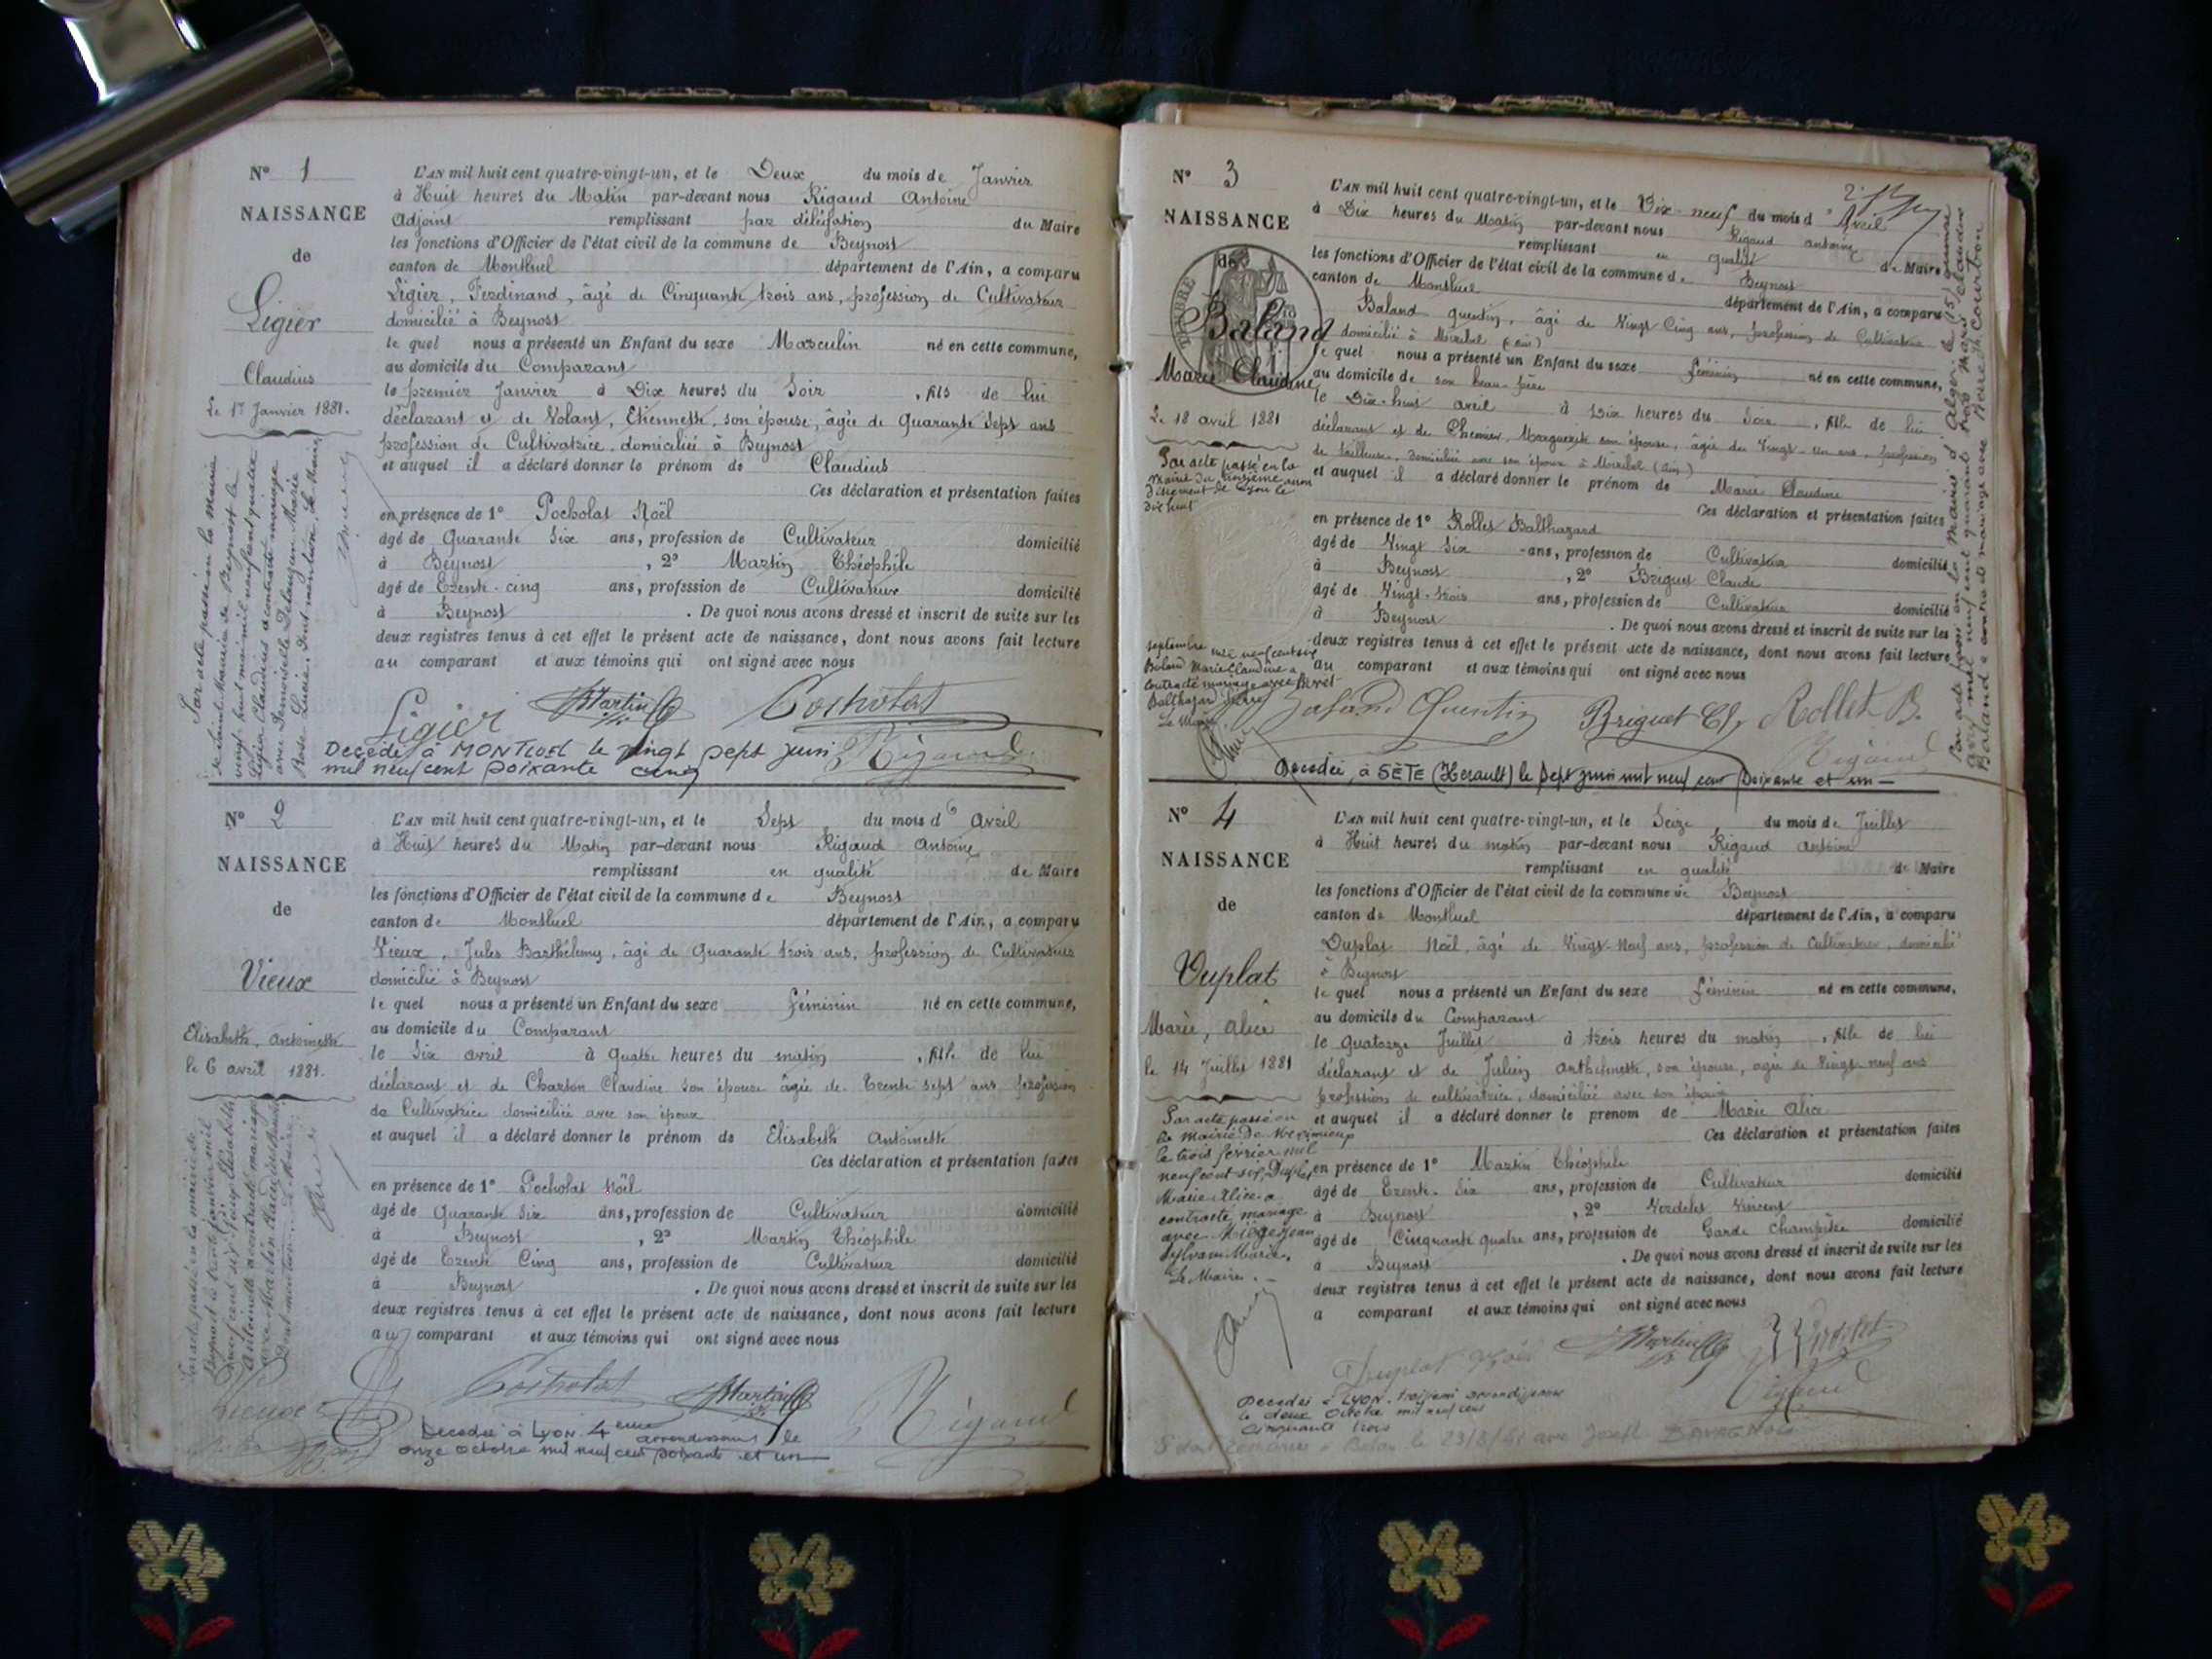 N° 1
NAISSANCE
de
Ligier
Claudius
Le 1er Janvier 1881.
L'AN mil huit cent quatre-vingt-un, et le Deux du mois de Janvier
à Huit heures du Matin par-devant nous Rigaud Antoine
Adjoint remplissant par délégation du Maire
les fonctions d'Officier de l'état civil de la commune de Beynost
canton de Montluel département de l'Ain, a comparu
Ligier, Ferdinand, âgé de Cinquante trois ans, profession de Cultivateur
domicilié à Beynost
le quel nous a présenté un Enfant du sexe Masculin né en cette commune,
au domicile du Comparant
le premier Janvier à Dix heures du Soir, fils de lui
déclarant et de Volant, Etiennette, son épouse, âgée de Quarante Sept ans
profession de Cultivatrice, domiciliée à Beynost
et auquel il a déclaré donner le prénom de Claudius
Ces déclaration et présentation faites
en présence de 1° Pocholat Noël
âgé de Quarante Six ans, profession de Cultivateur domicilié
à Beynost, 2° Martin Théophile
âgé de Trente-cinq ans, profession de Cultivateur domicilié
à Beynost. De quoi nous avons dressé et inscrit de suite sur les
deux registres tenus à cet effet le présent acte de naissance, dont nous avons fait lecture
au comparant et aux témoins qui ont signé avec nous
Ligier Martin Pocholat
Décédé à MONTLUEL le vingt sept juin Rigaud
mil neuf cent soixante cinq
N° 2
NAISSANCE
de
Vieux
Elisabeth, Antoinette
le 6 avril 1881.
L'AN mil huit cent quatre-vingt-un, et le Sept du mois d' Avril
à Huit heures du Matin par-devant nous Rigaud Antoine
remplissant en qualité de Maire
les fonctions d'Officier de l'état civil de la commune de Beynost
canton de Montluel département de l'Ain, a comparu
Vieux, Jules Barthélemy, âgé de Quarante trois ans, profession de Cultivateur
domicilié à Beynost
le quel nous a présenté un Enfant du sexe féminin né en cette commune,
au domicile du Comparant
le Six avril à Quatre heures du matin, fille de lui
déclarant et de Charton Claudine son épouse âgée de Trente sept ans profession
de Cultivatrice domiciliée avec son époux
et auquel il a déclaré donner le prénom de Elisabeth Antoinette
Ces déclaration et présentation faites
en présence de 1° Pocholat Noël
âgé de Quarante Six ans, profession de Cultivateur domicilié
à Beynost, 2° Martin Théophile
âgé de Trente Cinq ans, profession de Cultivateur domicilié
à Beynost. De quoi nous avons dressé et inscrit de suite sur les
deux registres tenus à cet effet le présent acte de naissance, dont nous avons fait lecture
au comparant et aux témoins qui ont signé avec nous
Pocholat Martin Rigaud
Décédée à Lyon 4eme arrondissement le
onze octobre mil neuf cent soixante et un
N° 3
NAISSANCE
de
Baland
Marie Claudine
Le 18 avril 1881
Par acte passé en la
mairie du troisième arron
dissement de Lyon le
dix huit
septembre mil neuf cent six
Baland Marie Claudine a
contracté mariage avec
Balthazar Pierre
Le Maire.
L'AN mil huit cent quatre-vingt-un, et le Dix-neuf du mois d' Avril
à Dix heures du Matin par-devant nous Rigaud Antoine
remplissant en qualité de Maire
les fonctions d'Officier de l'état civil de la commune de Beynost
canton de Montluel département de l'Ain, a comparu
Baland Quentin, âgé de Vingt Cinq ans, profession de Cultivateur
domicilié à Miribel (Ain)
le quel nous a présenté un Enfant du sexe féminin né en cette commune,
au domicile de son beau-père
le Dix-huit avril à Dix heures du Soir, fille de lui
déclarant et de Chemier, Marguerite son épouse, âgée de Vingt-un ans, profession
de tailleuse, domiciliée avec son époux à Miribel (Ain)
et auquel il a déclaré donner le prénom de Marie Claudine
Ces déclaration et présentation faites
en présence de 1° Rollet Balthazard
âgé de Vingt Six ans, profession de Cultivateur domicilié
à Beynost, 2° Briguet Claude
âgé de Vingt-trois ans, profession de Cultivateur domicilié
à Beynost. De quoi nous avons dressé et inscrit de suite sur les
deux registres tenus à cet effet le présent acte de naissance, dont nous avons fait lecture
au comparant et aux témoins qui ont signé avec nous
Baland Quentin Briguet Cl. Rollet B.
Rigaud
Décédée, à SÈTE (Herault) le sept mai mil neuf cent soixante et un
N° 4
NAISSANCE
de
Duplat
Marie, Alice
le 14 Juillet 1881
Par acte passé en
la mairie de Meximieux
le trois février mil
neuf cent six, Duplat
Marie Alice a
contracté mariage
avec Miége Jean
Sylvain Marie.
Le Maire.
L'AN mil huit cent quatre-vingt-un, et le Seize du mois de Juillet
à Huit heures du matin par-devant nous Rigaud Antoine
remplissant en qualité de Maire
les fonctions d'Officier de l'état civil de la commune de Beynost
canton de Montluel département de l'Ain, a comparu
Duplat Noël, âgé de Vingt-Neuf ans, profession de Cultivateur, domicilié
à Beynost
le quel nous a présenté un Enfant du sexe féminin né en cette commune,
au domicile du Comparant
le Quatorze Juillet à trois heures du matin, fille de lui
déclarant et de Julien Anthelmette, son épouse, âgée de Vingt-neuf ans
profession de cultivatrice, domiciliée avec son époux
et auquel il a déclaré donner le prénom de Marie Alice
Ces déclaration et présentation faites
en présence de 1° Martin Théophile
âgé de Trente-Six ans, profession de Cultivateur domicilié
à Beynost, 2° Verdelet Vincent
âgé de Cinquante quatre ans, profession de Garde Champêtre domicilié
à Beynost. De quoi nous avons dressé et inscrit de suite sur les
deux registres tenus à cet effet le présent acte de naissance, dont nous avons fait lecture
a comparant et aux témoins qui ont signé avec nous
Duplat Martin
Rigaud
Décédée à LYON. troisième arrondissement
le deux Octobre mil neuf cent
cinquante trois